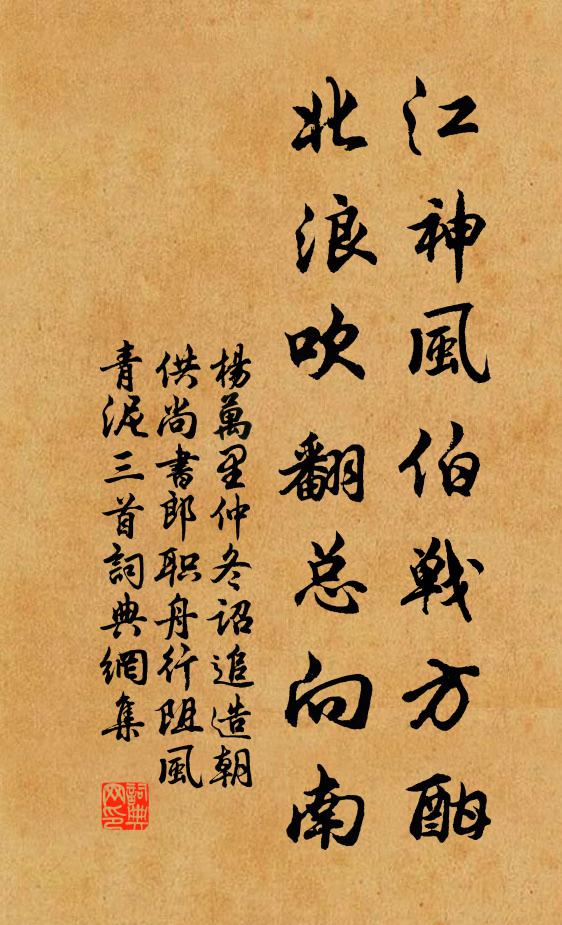 江神風伯戰方酣
北浪吹翻总向南
楊萬里仲冬詔追造朝
供尚書郎职舟行阻風
青泥三首詞典網集
詞典网印